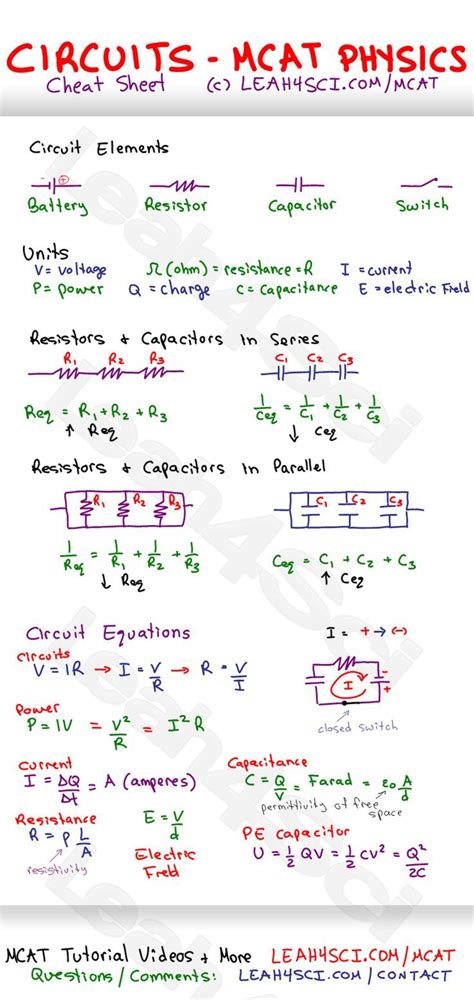 CIRCUITS - MCAT PHYSICS
Cheat Sheet (c) LEAH4SCI.COM/MCAT
Circuit Elements
Battery Resistor Capacitor Switch
Units
V = voltage Ω (ohm) = resistance = R I = current
P = power Q = charge C = capacitance E = electric Field
Resistors + Capacitors In Series
R₁ R₂ R₃ C₁ C₂ C₃
Req = R₁ + R₂ + R₃ 1/Ceq = 1/C₁ + 1/C₂ + 1/C₃
↑ Req ↓ Ceq
Resistors + Capacitors In Parallel
R₁ R₂ R₃ C₁ C₂ C₃
1/Req = 1/R₁ + 1/R₂ + 1/R₃ Ceq = C₁ + C₂ + C₃
↓ Req ↑ Ceq
Circuit Equations I = + → (-)
Circuits
V = IR → I = V/R → R = V/I
+ - + -
I
closed switch
Power
P = IV = V²/R = I²R
Current
I = ΔQ/Δt = A (amperes)
Capacitance
C = Q/V = Farad = ε₀ A/d
permittivity of free space
Resistance
R = ρ L/A
resistivity
E = V/d
Electric Field
PE Capacitor
U = 1/2 QV = 1/2 CV² = Q²/2C
MCAT Tutorial Videos + More LEAH4SCI.COM/MCAT
Questions / Comments: LEAH4SCI.COM / CONTACT
Leah4Sci
Leah4Sci
Leah4Sci